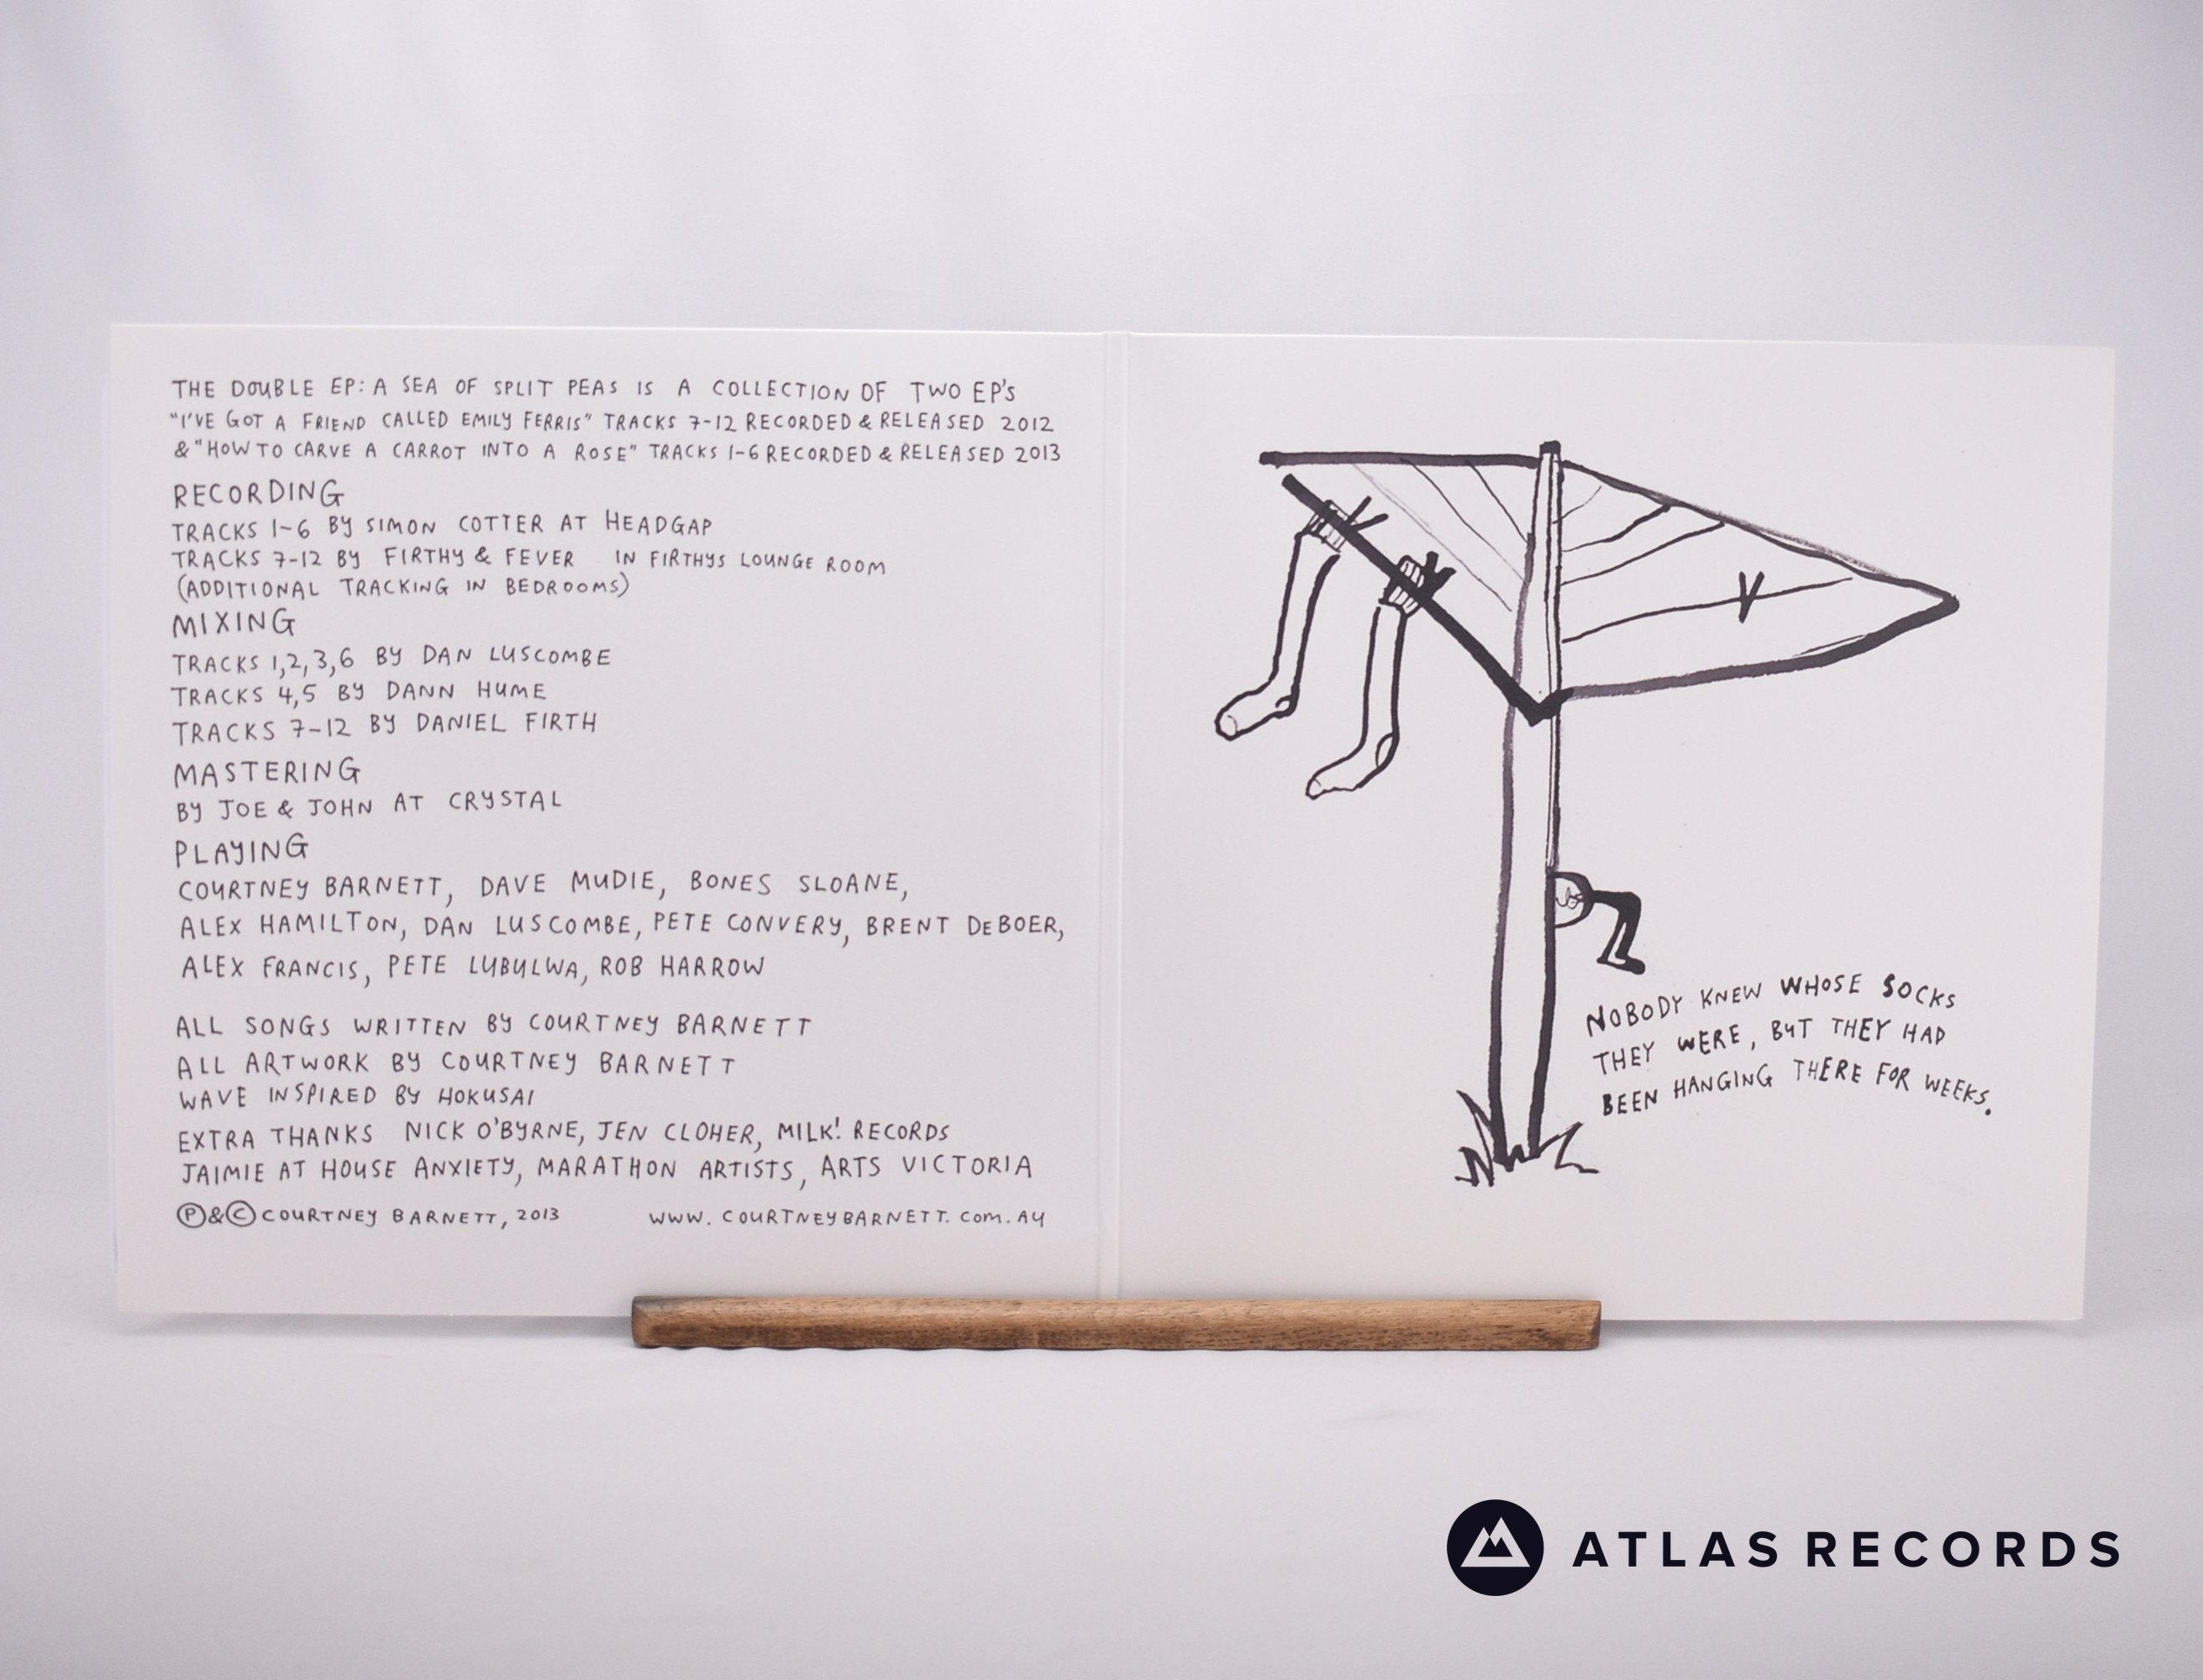 THE DOUBLE EP: A SEA OF SPLIT PEAS IS A COLLECTION OF TWO EP'S
"I'VE GOT A FRIEND CALLED EMILY FERRIS" TRACKS 7-12 RECORDED & RELEASED 2012
& "HOW TO CARVE A CARROT INTO A ROSE" TRACKS 1-6 RECORDED & RELEASED 2013
RECORDING
TRACKS 1-6 BY SIMON COTTER AT HEADGAP
TRACKS 7-12 BY FIRTHY & FEVER IN FIRTHYS LOUNGE ROOM
(ADDITIONAL TRACKING IN BEDROOMS)
MIXING
TRACKS 1,2,3,6 BY DAN LUSCOMBE
TRACKS 4,5 BY DANN HUME
TRACKS 7-12 BY DANIEL FIRTH
MASTERING
BY JOE & JOHN AT CRYSTAL
PLAYING
COURTNEY BARNETT, DAVE MUDIE, BONES SLOANE,
ALEX HAMILTON, DAN LUSCOMBE, PETE CONVERY, BRENT DeBOER,
ALEX FRANCIS, PETE LUBULWA, ROB HARROW
ALL SONGS WRITTEN BY COURTNEY BARNETT
ALL ARTWORK BY COURTNEY BARNETT
WAVE INSPIRED BY HOKUSAI
EXTRA THANKS NICK O'BYRNE, JEN CLOHER, MILK! RECORDS
JAIMIE AT HOUSE ANXIETY, MARATHON ARTISTS, ARTS VICTORIA
Ⓟ&Ⓒ COURTNEY BARNETT, 2013 WWW.COURTNEYBARNETT.COM.AU
NOBODY KNEW WHOSE SOCKS
THEY WERE, BUT THEY HAD
BEEN HANGING THERE FOR WEEKS.
ATLAS RECORDS